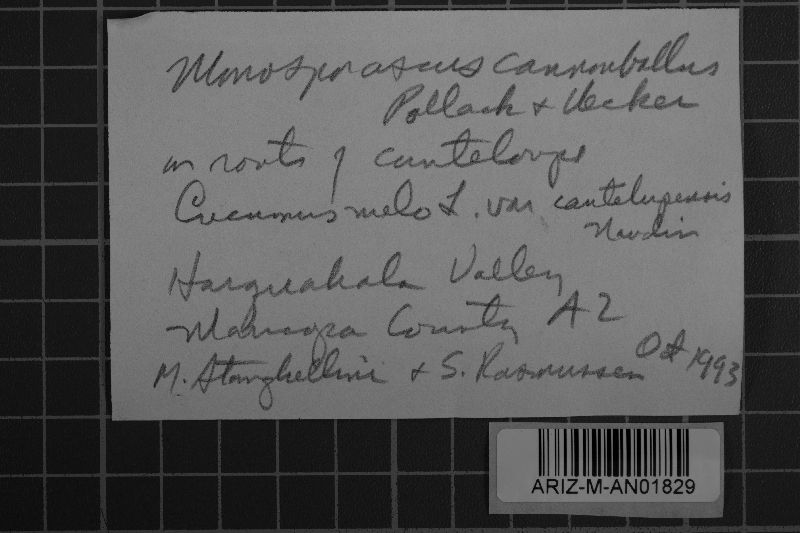 Monosporascus cannonballus
Pollack & Uecker
on roots of canteloupe
Cucumis melo L. var. cantelupensis
Naudin
Harquahala Valley
Maricopa County AZ
M. Stanghellini & S. Rasmussen Oct 1993
ARIZ-M-AN01829